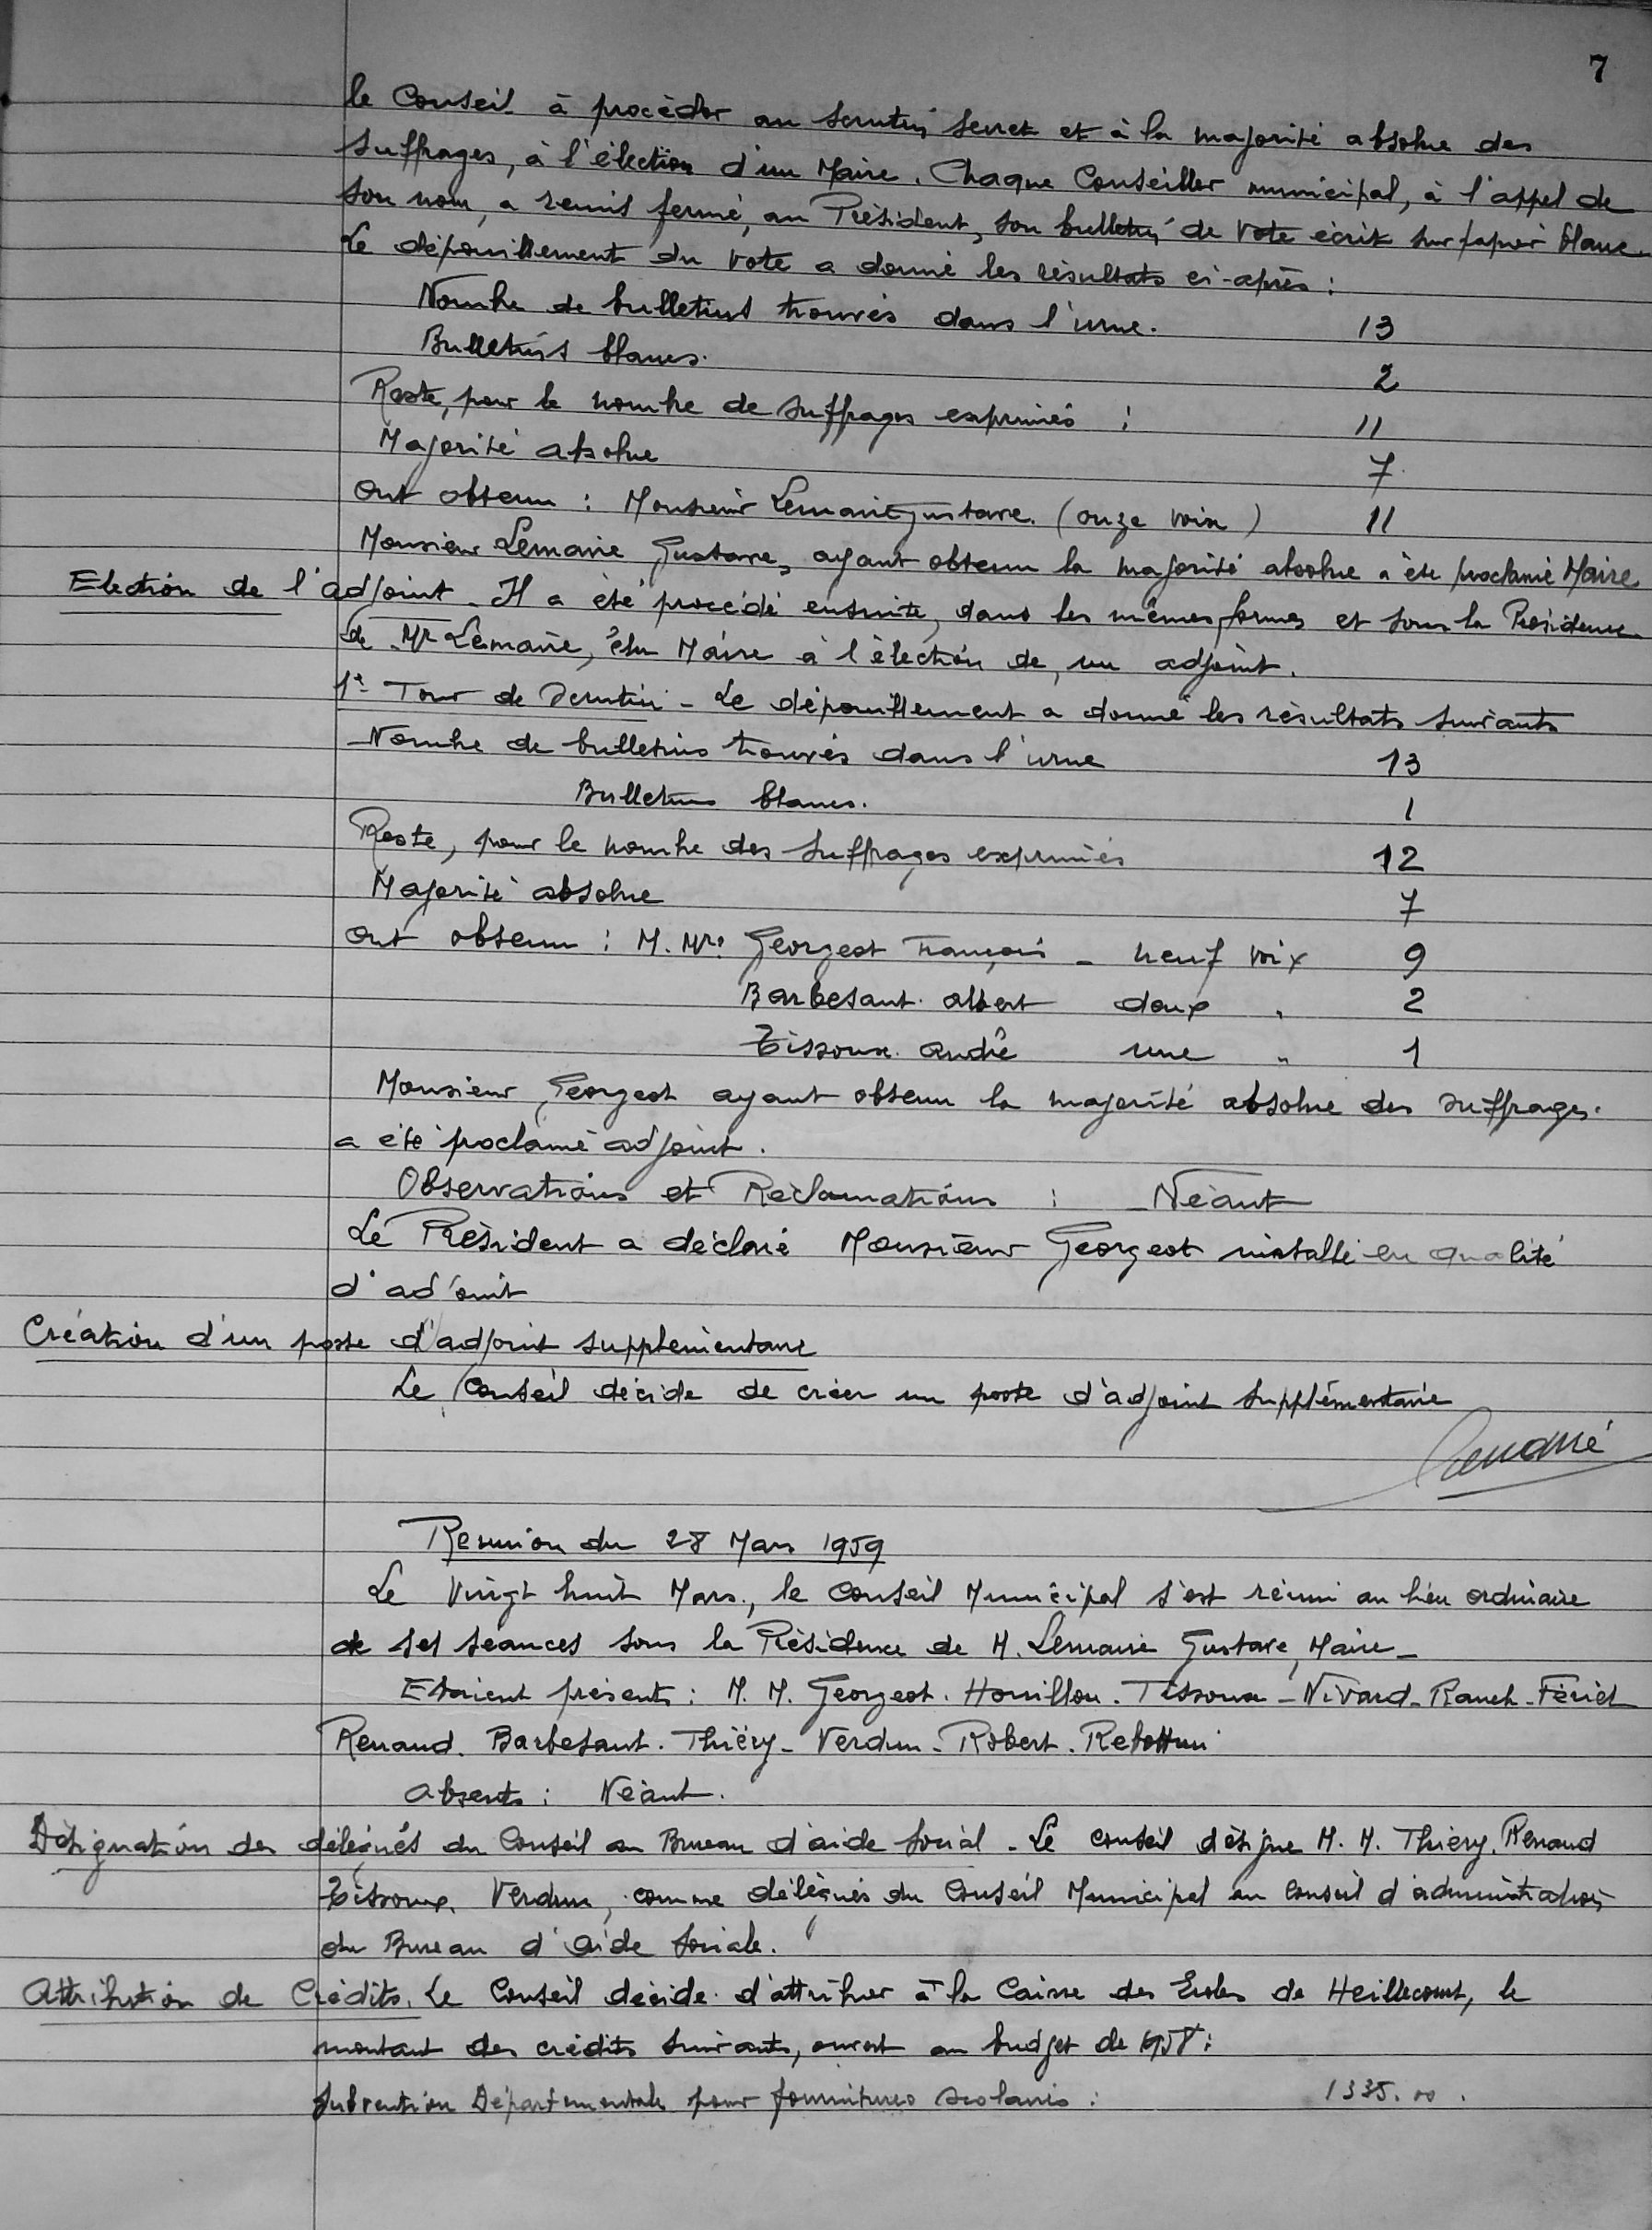 7
le Conseil à procéder au scrutin secret et à la majorité absolue des
suffrages, à l'élection d'un Maire. Chaque Conseiller municipal, à l'appel de
son nom, a remis fermé, au Président, son bulletin de vote écrit sur papier blanc
Le dépouillement du vote a donné les résultats ci-après :
Nombre de bulletins trouvés dans l'urne. 13
Bulletins blancs. 2
Reste, pour le nombre de suffrages exprimés : 11
Majorité absolue 7
Ont obtenu : Monsieur Lemaire Gustave. (onze voix) 11
Monsieur Lemaire Gustave, ayant obtenu la majorité absolue a été proclamé Maire
Election de l'adjoint - Il a été procédé ensuite, dans les mêmes formes et sous la Présidence
de Mr Lemaire, élu Maire à l'élection de, un adjoint.
1er Tour de Scrutin - Le dépouillement a donné les résultats suivants
Nombre de bulletins trouvés dans l'urne 13
Bulletins blancs. 1
Reste, pour le nombre des suffrages exprimés 12
Majorité absolue 7
Ont obtenu : M. Mrs Georgeot François - neuf voix 9
Barbesant. Albert deux " 2
Tissoux. André une " 1
Monsieur Georgeot ayant obtenu la majorité absolue des suffrages.
a été proclamé adjoint.
Observations et Réclamations : Néant
Le Président a déclaré Monsieur Georgeot installé en qualité
d'adjoint
Création d'un poste d'adjoint supplémentaire
Le Conseil décide de créer un poste d'adjoint supplémentaire
Réunion du 28 Mars 1959
Le Vingt huit Mars., le Conseil Municipal s'est réuni au lieu ordinaire
de ses séances sous la Présidence de M. Lemaire Gustave, Maire -
Etaient présents : M. M. Georgeot. Houillon. Tissoux - Nivard - Rauch - Fériet
Renaud. Barbesant. Thiéry - Verdun - Robert.
Absents : Néant.
Désignation des délégués du Conseil au Bureau d'aide social - Le conseil désigne M. M. Thiéry. Renaud
Tissoux. Verdun, comme délégués du Conseil Municipal au Conseil d'administration
du Bureau d'Aide Sociale.
Attribution de Crédits. Le Conseil décide d'attribuer à la Caisse des Ecoles de Heillecourt, le
montant des crédits suivants, ouvert au budget de 1958 :
Subvention Départementale pour fournitures scolaires : 1335.00.